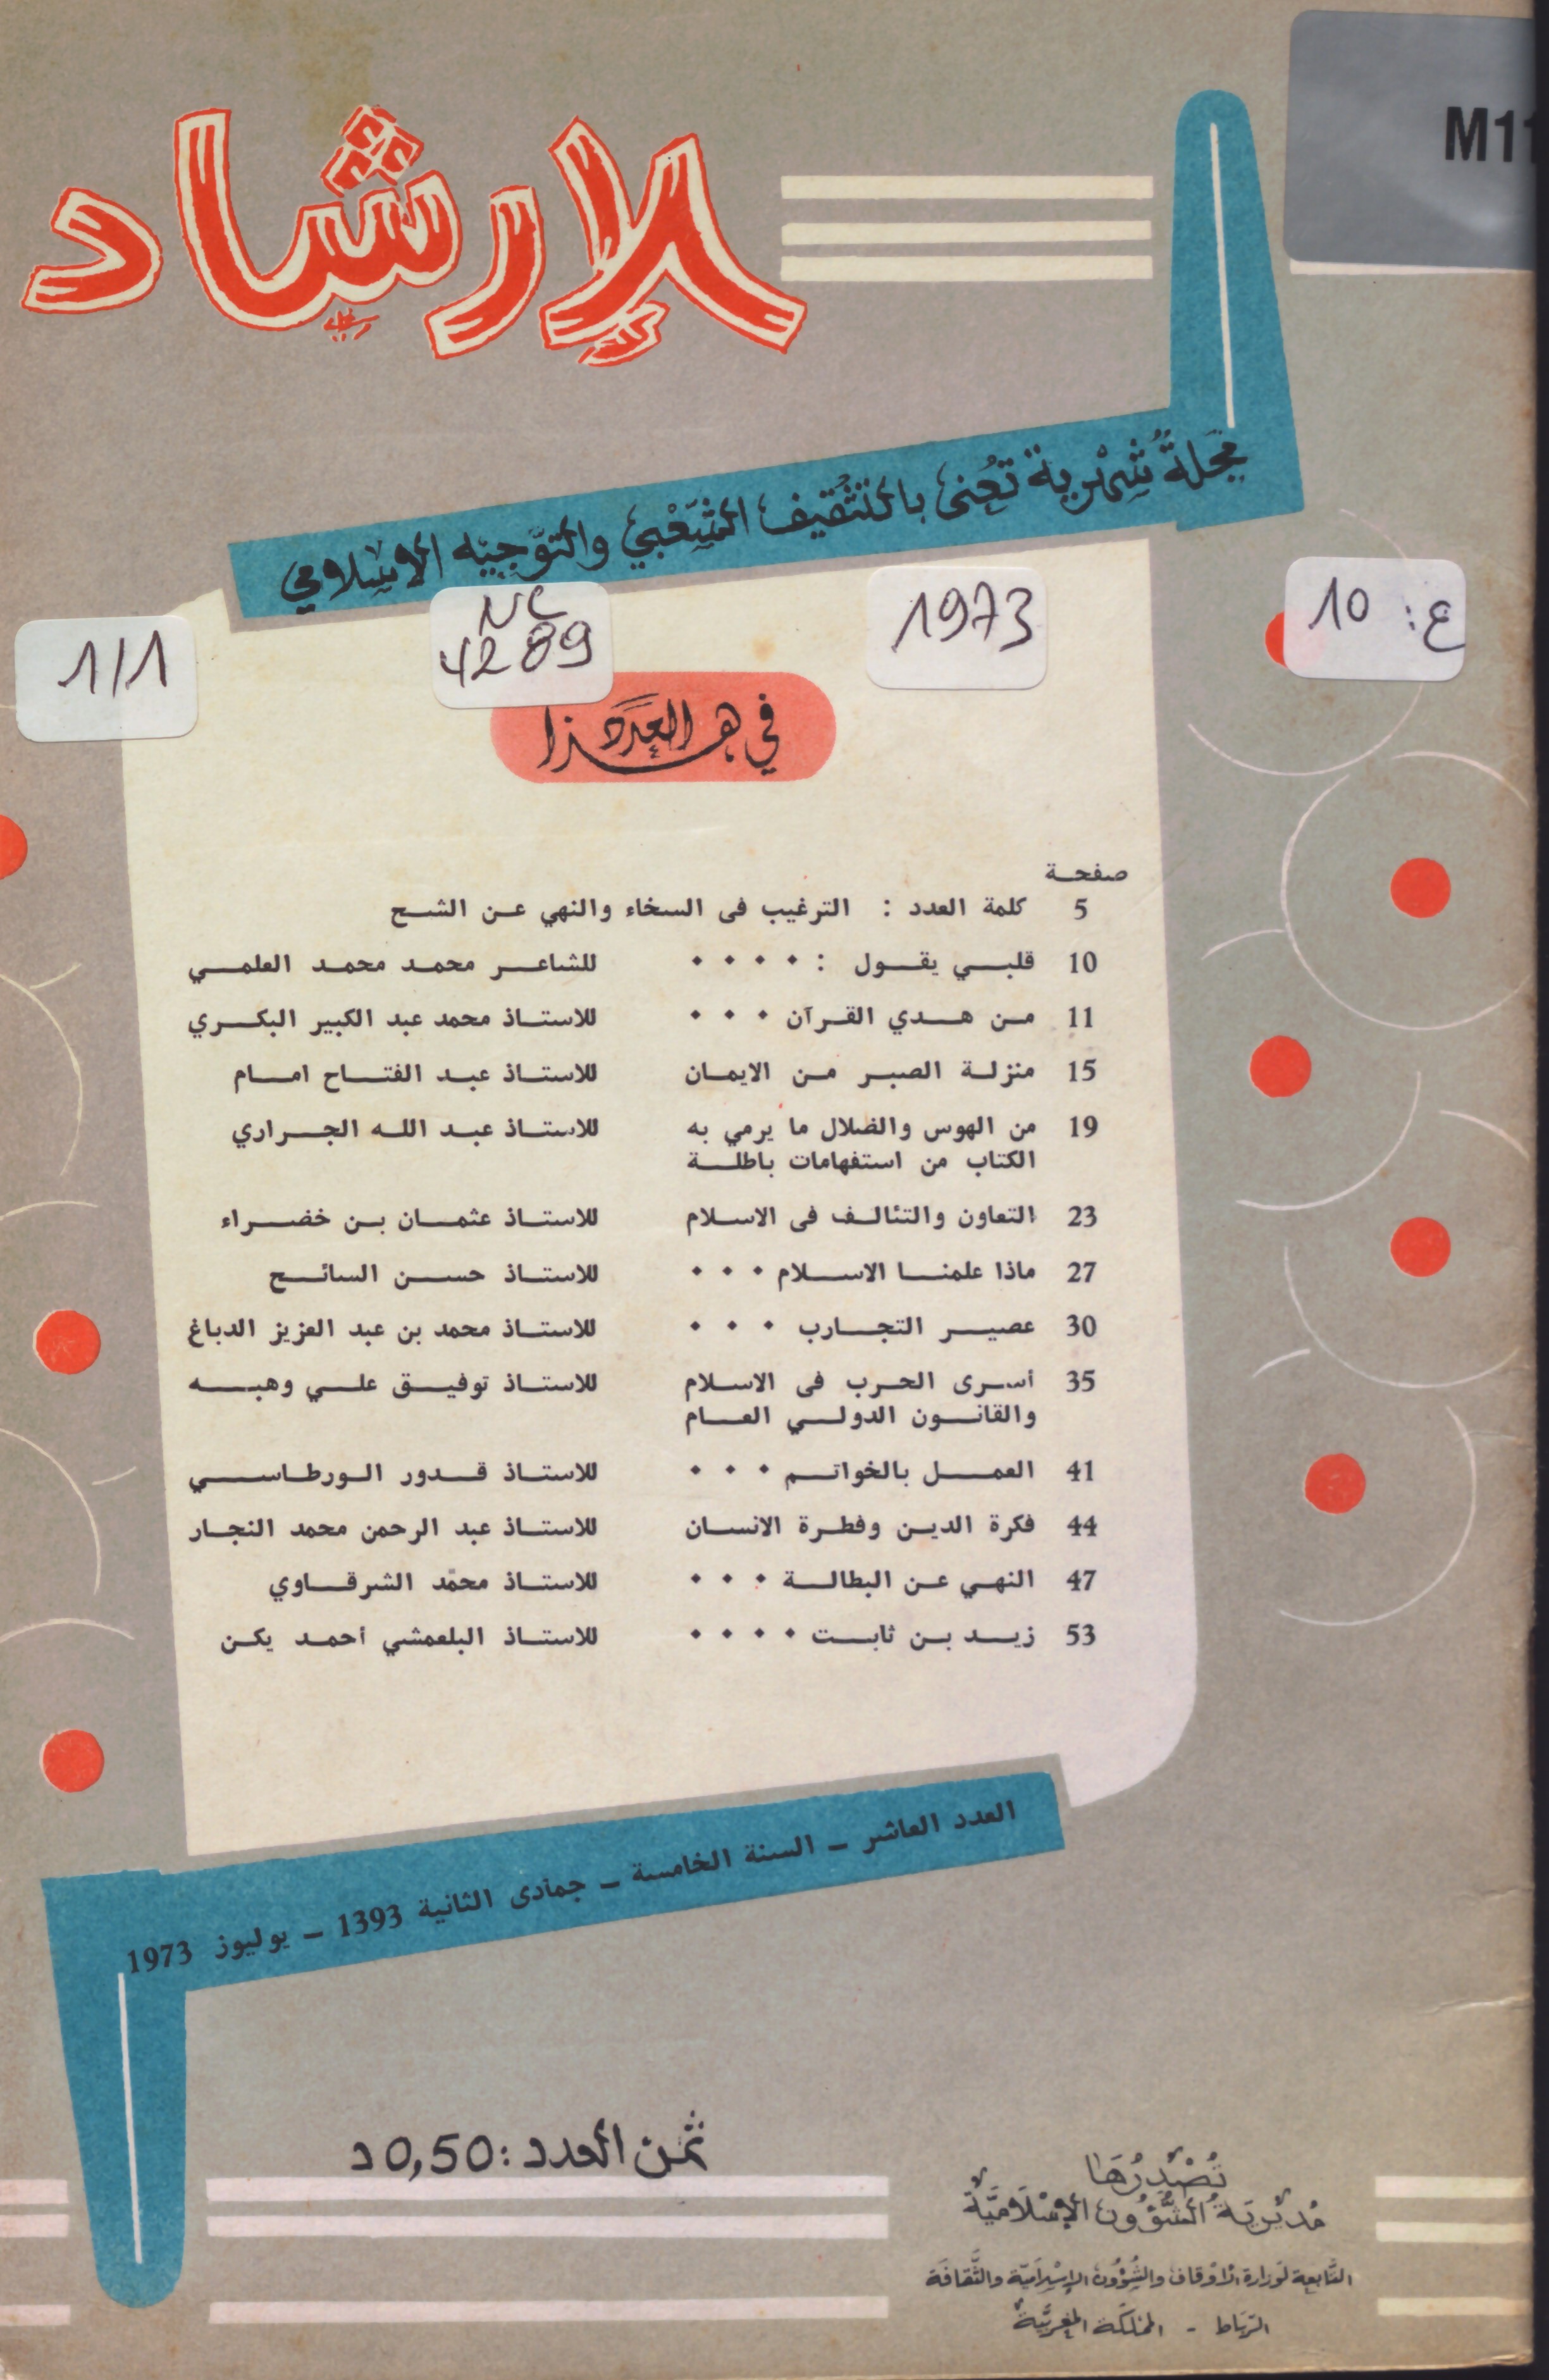 M11
الإرشاد
مجلة شهرية تعنى بالتثقيف الشعبي والتوجيه الإسلامي
ع: 10
1973
NL
4289
1/1
في هذا العدد
صفحة
5 كلمة العدد : الترغيب فى السخاء والنهي عن الشح
10 قلبي يقول : • • • • للشاعر محمد محمد العلمي
11 من هدي القرآن • • • للاستاذ محمد عبد الكبير البكري
15 منزلة الصبر من الايمان للاستاذ عبد الفتاح امام
19 من الهوس والضلال ما يرمي به للاستاذ عبد الله الجراري
الكتاب من استفهامات باطلة
23 التعاون والتئالف فى الاسلام للاستاذ عثمان بن خضراء
27 ماذا علمنا الاسلام • • • للاستاذ حسن السائح
30 عصير التجارب • • • للاستاذ محمد بن عبد العزيز الدباغ
35 أسرى الحرب فى الاسلام للاستاذ توفيق علي وهبه
والقانون الدولي العام
41 العمل بالخواتم • • • للاستاذ قدور الورطاسي
44 فكرة الدين وفطرة الانسان للاستاذ عبد الرحمن محمد النجار
47 النهي عن البطالة • • • للاستاذ محمد الشرقاوي
53 زيد بن ثابت • • • • للاستاذ البلعمشي أحمد يكن
العدد العاشر – السنة الخامسة – جمادى الثانية 1393 – يوليوز 1973
ثمن العدد : 0,50 د
تُصْدِرُهَا
مُديْريَةُ الشُّؤُون الإِسْلَاميَّة
التَّابعة لوزارة الأوقاف والشؤُون الإسْلاميّة والثَّقافة
الرّباط - المملكَة المغربيَّة